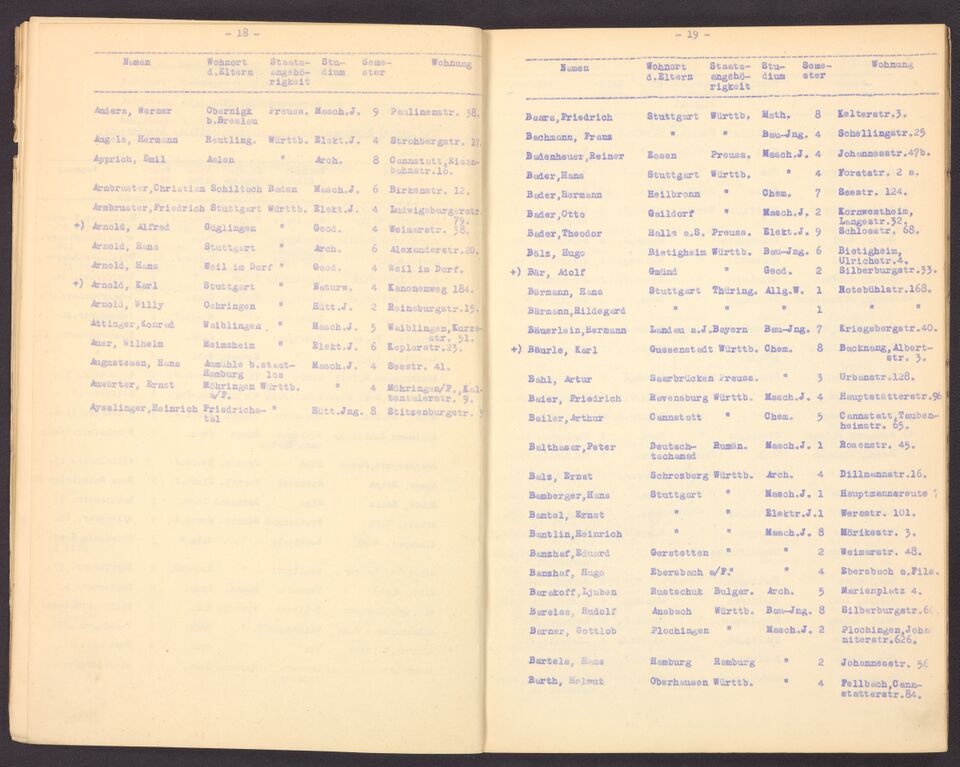 - 18 -
Namen Wohnort Staats- Stu- Seme- Wohnung
d.Eltern angehö- dium ster
rigkeit
Anders, Werner Obernigk Preuss. Masch.J. 9 Paulinenstr. 38.
b.Breslau
Angele, Hermann Reutling. Württb. Elekt.J. 4 Strohbergstr. 17
Apprich, Emil Aalen " Arch. 8 Cannstatt,Eisen-
bahnstr.16.
Armbruster,Christian Schiltach Baden Masch.J. 6 Birkenstr. 12.
Armbruster,Friedrich Stuttgart Württb. Elekt.J. 4 Ludwigsburgerstr.
79.
+) Arnold, Alfred Güglingen " Geod. 4 Weimarstr. 38.
Arnold, Hans Stuttgart " Arch. 6 Alexanderstr.20.
Arnold, Hans Weil im Dorf " Geod. 4 Weil im Dorf.
+) Arnold, Karl Stuttgart " Naturw. 4 Kanonenweg 184.
Arnold, Willy Oehringen " Hütt.J. 2 Reinsburgstr.15.
Attinger,Konrad Waiblingen " Masch.J. 5 Waiblingen,Kurze-
str. 51.
Auer, Wilhelm Heimsheim " Elekt.J. 6 Keplerstr.23.
Augustesen, Hans Aumühle b.staat- Masch.J. 4 Seestr. 41.
Hamburg los
Auwärter, Ernst Möhringen Württb. " 4 Möhringen/F.,Kal-
a/F. tentalerstr. 9.
Aysslinger,Heinrich Friedrichs- " Hütt.Jng. 8 Stitzenburgstr.
tal
- 19 -
Namen Wohnort Staats- Stu- Seme- Wohnung
d.Eltern angehö- dium ster
rigkeit
Baars,Friedrich Stuttgart Württb. Math. 8 Kelterstr.3.
Bachmann, Franz " " Bau-Jng. 4 Schellingstr.25
Badenheuer,Reiner Essen Preuss. Masch.J. 4 Johannesstr.47b.
Bader,Hans Stuttgart Württb. " 4 Forststr. 2 a.
Bader,Hermann Heilbronn " Chem. 7 Seestr. 124.
Bader,Otto Gaildorf " Masch.J. 2 Kornwestheim,
Langestr.32.
Bader,Theodor Halle a.S. Preuss. Elekt.J. 9 Schlosstr. 68.
Bälz, Hugo Bietigheim Württb. Bau-Jng. 6 Bietigheim,
Ulrichstr.4.
+) Bär, Adolf Gmünd " Geod. 2 Silberburgstr.33.
Bärmann, Hans Stuttgart Thüring. Allg.W. 1 Rotebühlstr.168.
Bärmann,Hildegard " " " 1 " "
Bäuerlein,Hermann Landau a.J.Bayern Bau-Jng. 7 Kriegsbergstr.40.
+) Bäurle, Karl Gussenstadt Württb. Chem. 8 Backnang,Albert-
str. 3.
Bahl, Artur Saarbrücken Preuss. " 3 Urbanstr.128.
Baier, Friedrich Ravensburg Württb. Masch.J. 4 Hauptstätterstr.96
Bailer,Arthur Cannstatt " Chem. 5 Cannstatt,Tauben-
heimstr. 65.
Balthasar,Peter Deutsch- Rumän. Masch.J. 1 Rosenstr. 45.
tschanad
Balz, Ernst Schrozberg Württb. Arch. 4 Dillmannstr.16.
Bamberger,Hans Stuttgart " Masch.J. 1 Hauptmannsreute
Bantel, Ernst " " Elektr.J.1 Werastr. 101.
Bantlin,Heinrich " " Masch.J. 8 Mörikestr. 3.
Banzhaf,Eduard Gerstetten " " 2 Weimarstr. 48.
Banzhaf, Hugo Ebersbach a/F." " 4 Ebersbach a.Fils.
Barakoff,Ljuben Rustschuk Bulgar. Arch. 5 Marienplatz 4.
Bareiss, Rudolf Ansbach Württb. Bau-Jng. 8 Silberburgstr.
Barner, Gottlob Plochingen " Masch.J. 2 Plochingen,Joha
niterstr.626.
Bartels, Hans Hamburg Hamburg " 2 Johannesstr. 56
Barth, Helmut Oberhausen Württb. " 4 Fellbach,Cann-
statterstr.84.